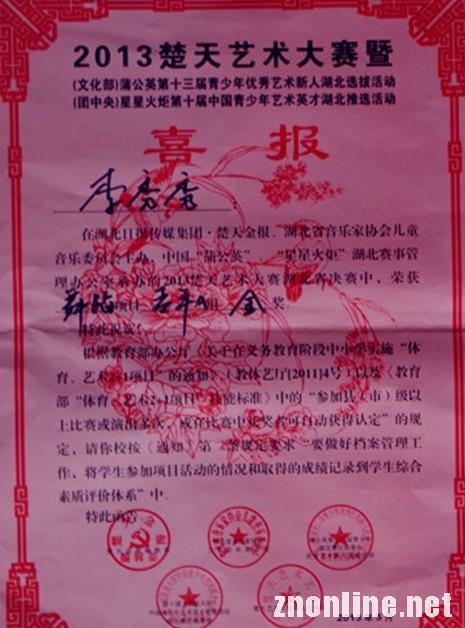 2013楚天艺术大赛暨
(文化部)蒲公英第十三届青少年优秀艺术新人湖北选拔活动
(团中央)星星火炬第十届中国青少年艺术英才湖北推选活动
喜报
李秀秀:
在湖北日报传媒集团·楚天金报、湖北省音乐家协会儿童
音乐委员会主办,中国“蒲公英”、“星星火炬”湖北赛事管
理办公室承办的2013楚天艺术大赛湖北省决赛中,荣获
舞蹈项目 A组 金奖。
特此祝贺!
根据教育部办公厅《关于在义务教育阶段中小学实施“体
育、艺术2+1项目”的通知》(教体艺厅[2011]4号)以及《教育
部“体育、艺术2+1项目”技能标准》中的“参加县(市)级以
上比赛或演出多次,或在比赛中获奖者可自动获得认定”的规
定,请你校按《通知》第 条规定要求“要做好档案管理工
作,将学生参加项目活动的情况和取得的成绩记录到学生综合
素质评价体系”中。
特此函告
楚天艺术大
2013年
znonline.net